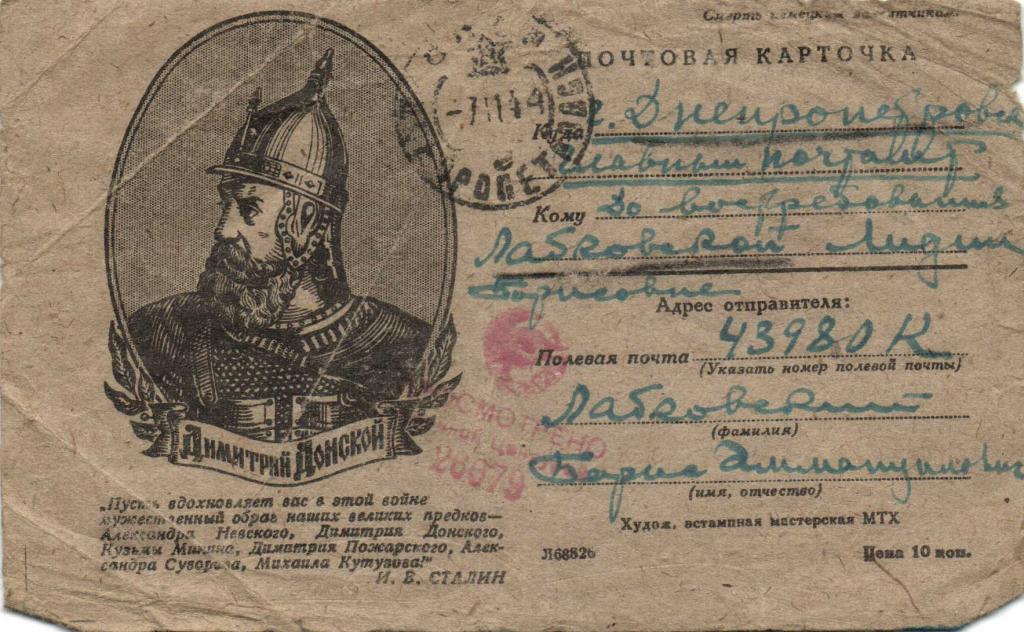 Смерть немецким захватчикам!
ПОЧТОВАЯ КАРТОЧКА
Куда г. Днепропетровск
главный почтамт
Кому до востребования
Лабковской Лидии
Борисовне
Адрес отправителя:
Полевая почта 43980 К
(Указать номер полевой почты)
Лабковский
(фамилия)
Борис Эммануилович
(имя, отчество)
Худож. эстампная мастерская МТХ
Л68826
Цена 10 коп.
-7 11 44
ПРОСМОТРЕНО
26979
ДИМИТРИЙ ДОНСКОЙ
„Пусть вдохновляет вас в этой войне
мужественный образ наших великих предков—
Александра Невского, Димитрия Донского,
Кузьмы Минина, Димитрия Пожарского, Алек-
сандра Суворова, Михаила Кутузова!"
И. В. СТАЛИН